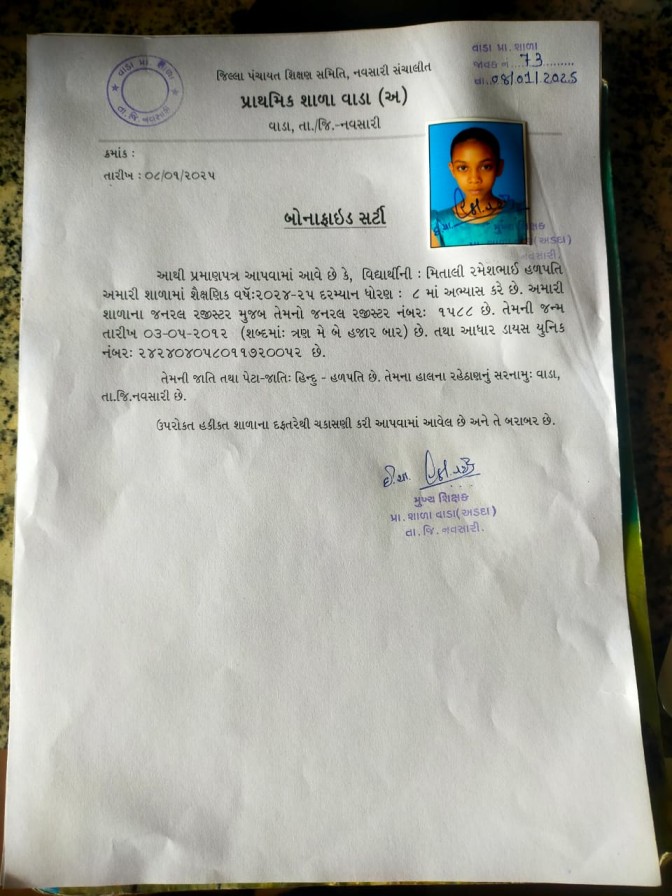 વાડા પ્રા. શાળા
જાવક નં. 73
તા. 08/01/2025
જિલ્લા પંચાયત શિક્ષણ સમિતિ, નવસારી સંચાલીત
પ્રાથમિક શાળા વાડા (અ)
વાડા, તા./જિ.-નવસારી
ક્રમાંક :
તારીખ : ૦૮/૦૧/૨૦૨૫
બોનાફાઇડ સર્ટી
મુખ્ય શિક્ષક
આથી પ્રમાણપત્ર આપવામાં આવે છે કે, વિદ્યાર્થીની : મિતાલી રમેશભાઈ હળપતિ
અમારી શાળામાં શૈક્ષણિક વર્ષ:૨૦૨૪-૨૫ દરમ્યાન ધોરણ : ૮ માં અભ્યાસ કરે છે. અમારી
શાળાના જનરલ રજીસ્ટર મુજબ તેમનો જનરલ રજીસ્ટર નંબરઃ ૧૫૮૮ છે. તેમની જન્મ
તારીખ ૦૩-૦૫-૨૦૧૨ (શબ્દમાંઃ ત્રણ મે બે હજાર બાર) છે. તથા આધાર ડાયસ યુનિક
નંબરઃ ૨૪૨૪૦૪૦૫૮૦૧૧૭૨૦૦૫૨ છે.
તેમની જાતિ તથા પેટા-જાતિઃ હિન્દુ - હળપતિ છે. તેમના હાલના રહેઠાણનું સરનામુઃ વાડા,
તા.જિ.નવસારી છે.
ઉપરોકત હકીકત શાળાના દફતરેથી ચકાસણી કરી આપવામાં આવેલ છે અને તે બરાબર છે.
મુખ્ય શિક્ષક
પ્રા. શાળા વાડા(અડદા)
તા. જિ. નવસારી.